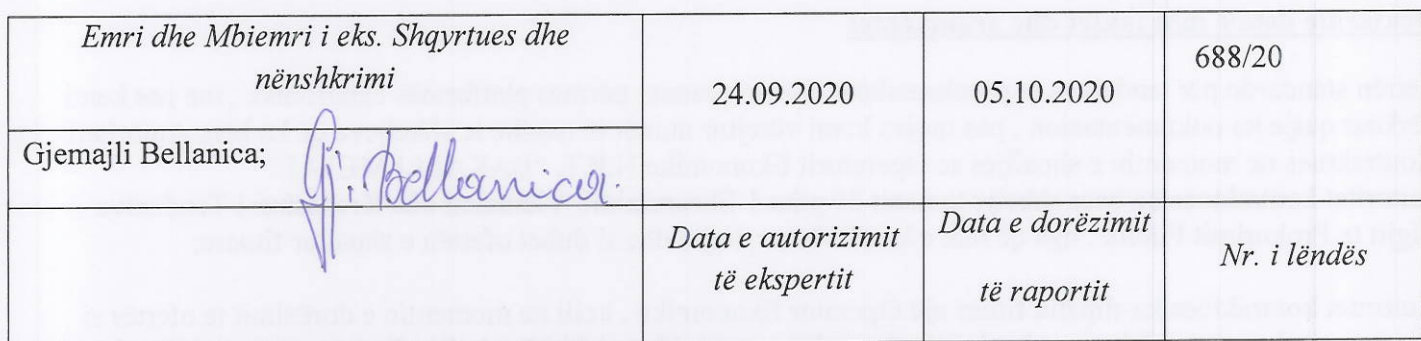 Emri dhe Mbiemri i eks. Shqyrtues dhe
nënshkrimi
24.09.2020
05.10.2020
688/20
Gjemajli Bellanica;
Gj. Bellanica.
Data e autorizimit
të ekspertit
Data e dorëzimit
të raportit
Nr. i lëndës